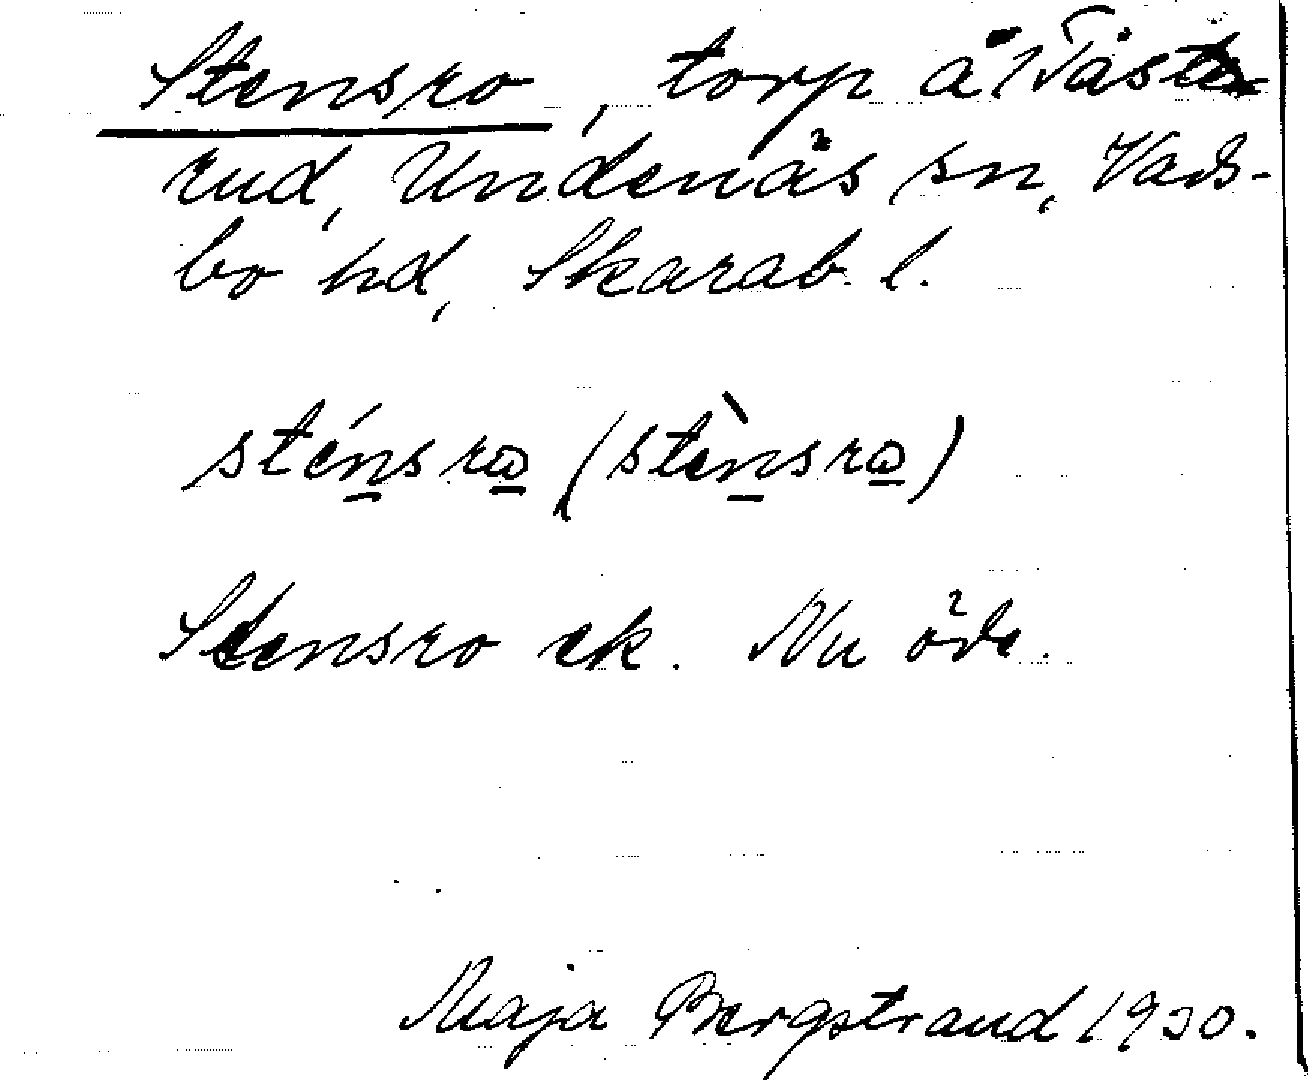 Stensro, torp å Fåste-
rud, Undenäs sn, Vads-
bo hd, Skarab. l.
sténsrω (stènsrω)
Stensro ek. Nu öde.
Maja Bergstrand 1930.